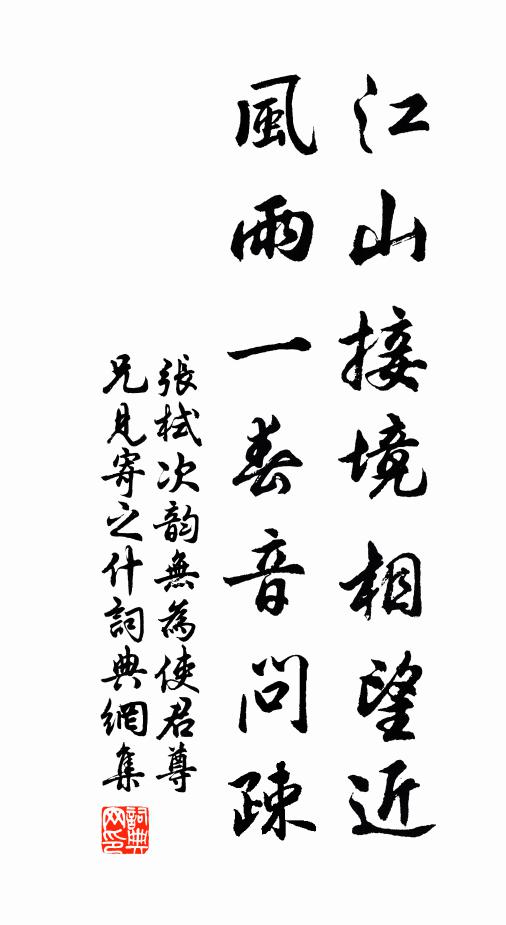 江山接境相望近
風雨一春音問疎
張栻次韵無為使君尊
兄見寄之什詞典網集
詞典
网印